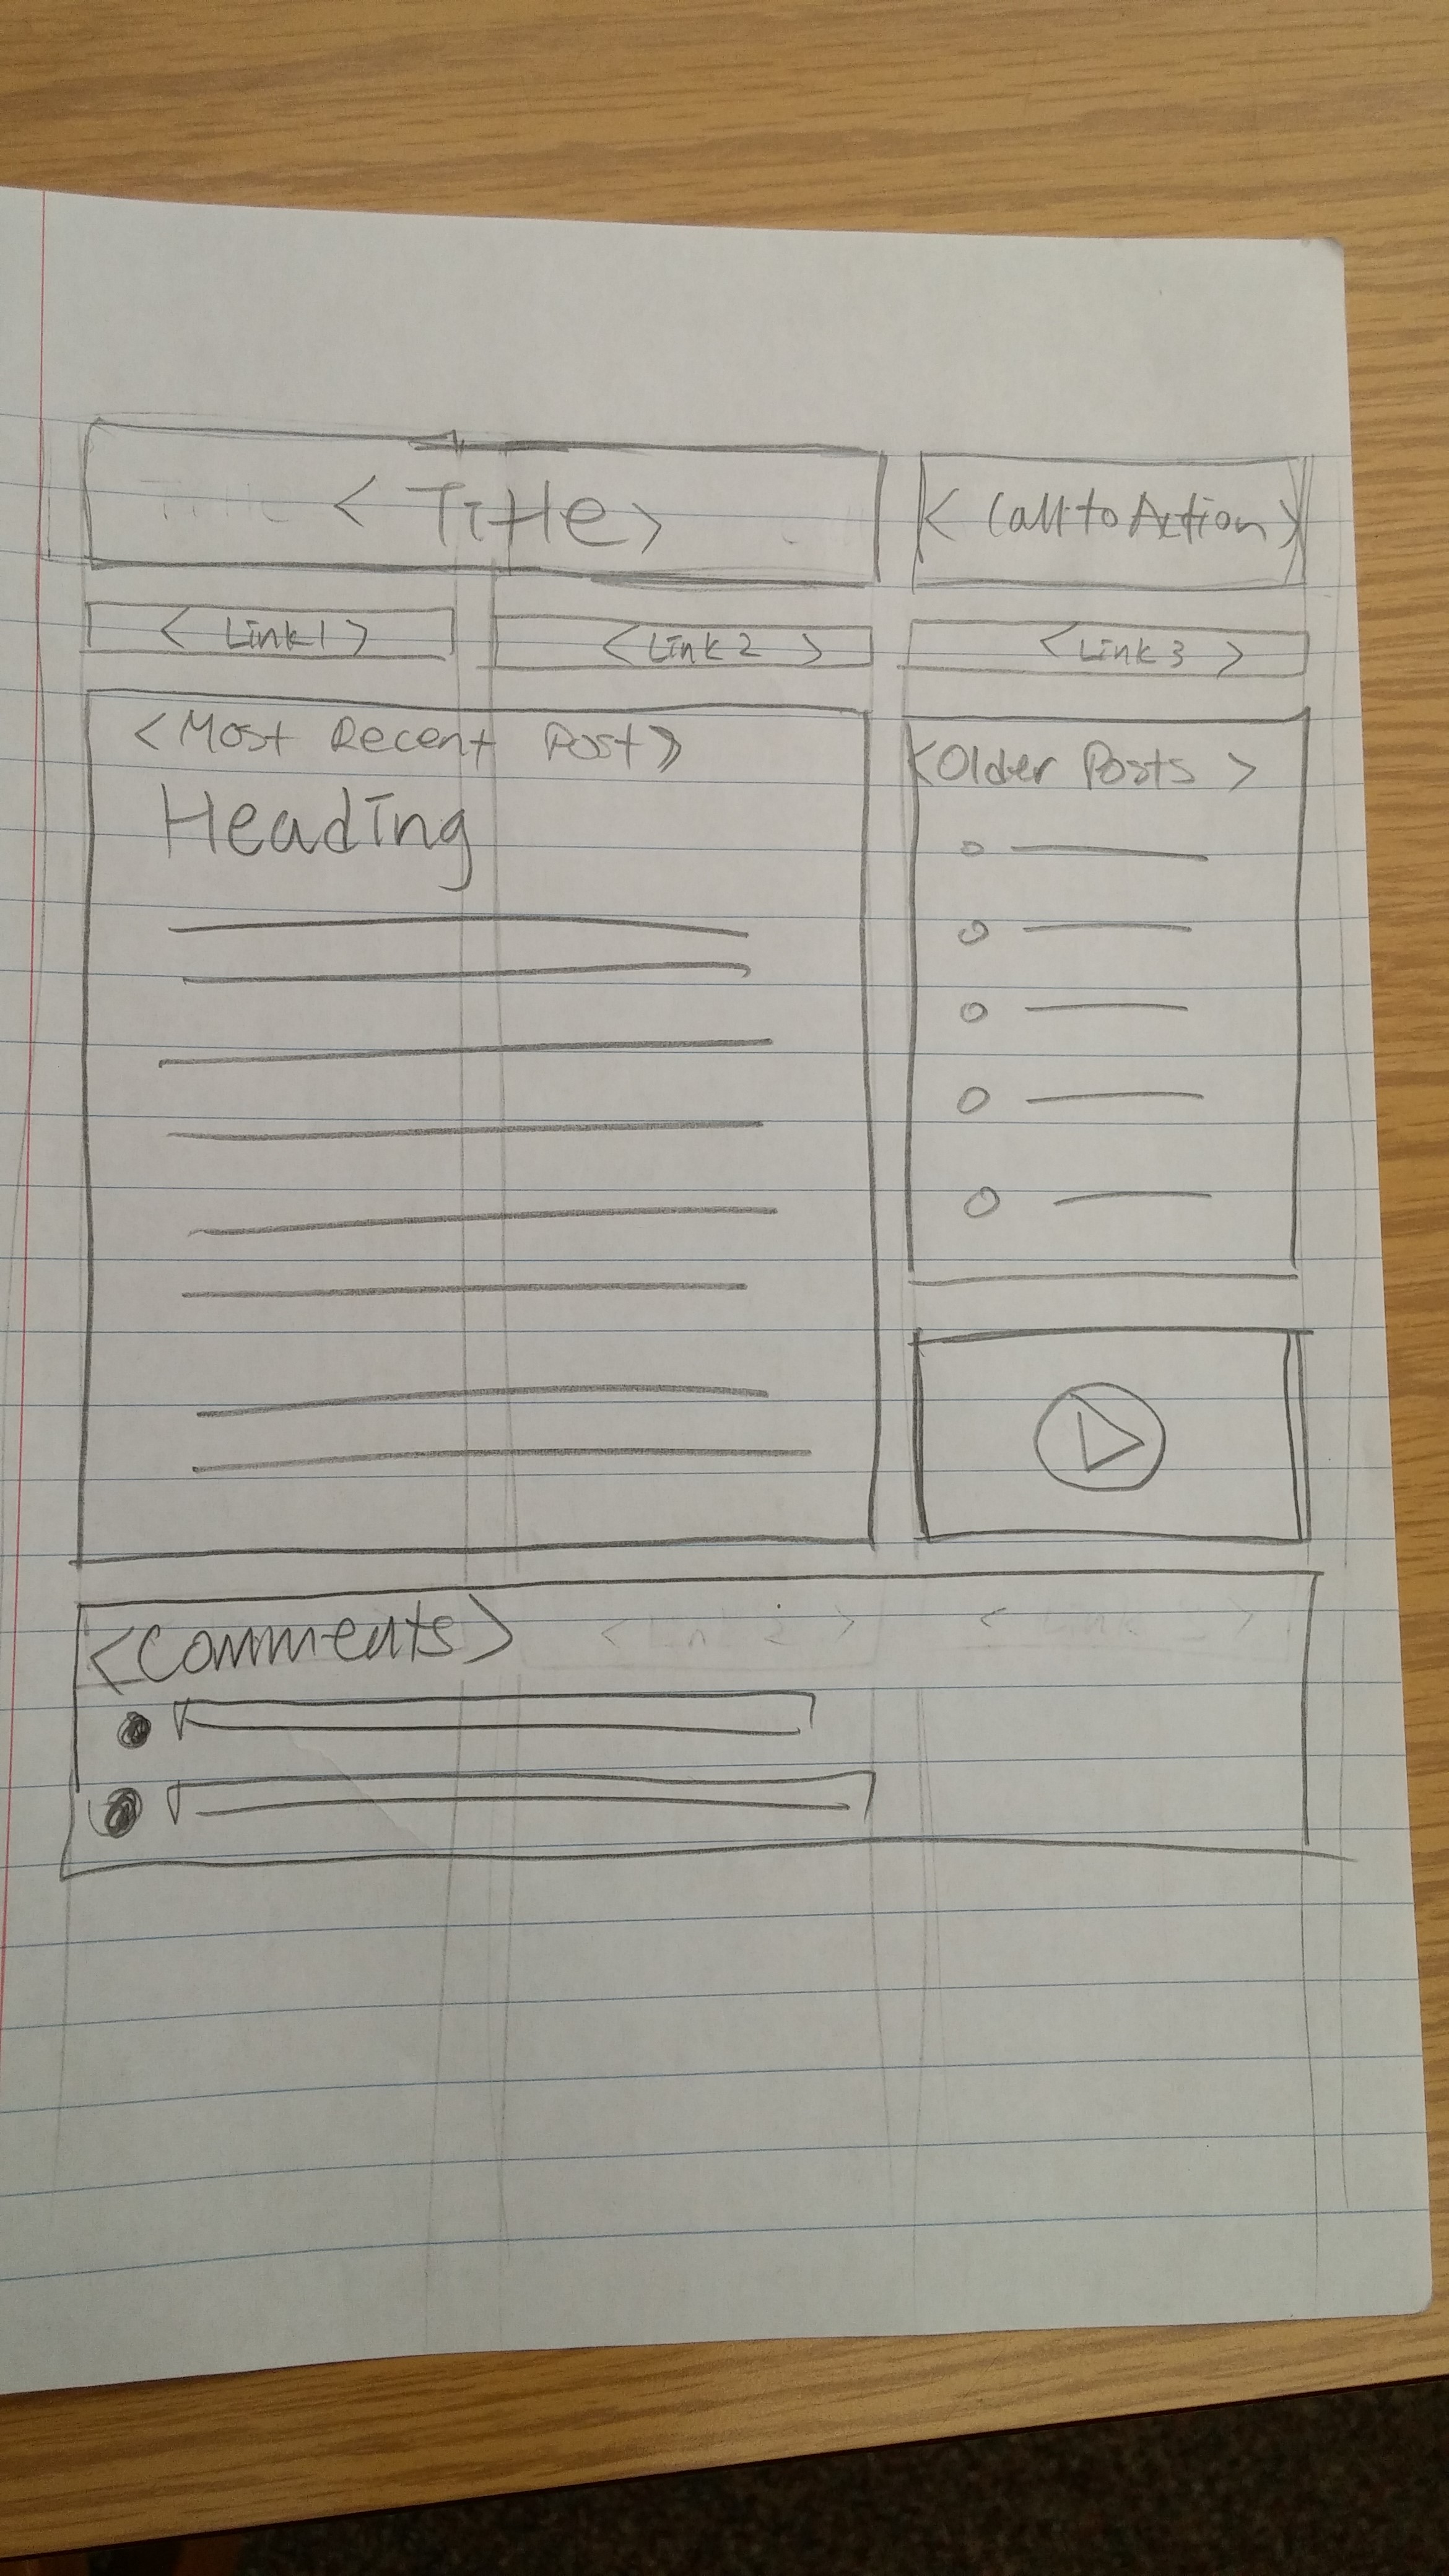 < Title >
< Call to Action >
< Link 1 >
< Link 2 >
< Link 3 >
<Most Recent Post>
Heading
<Older Posts >
<Comments>